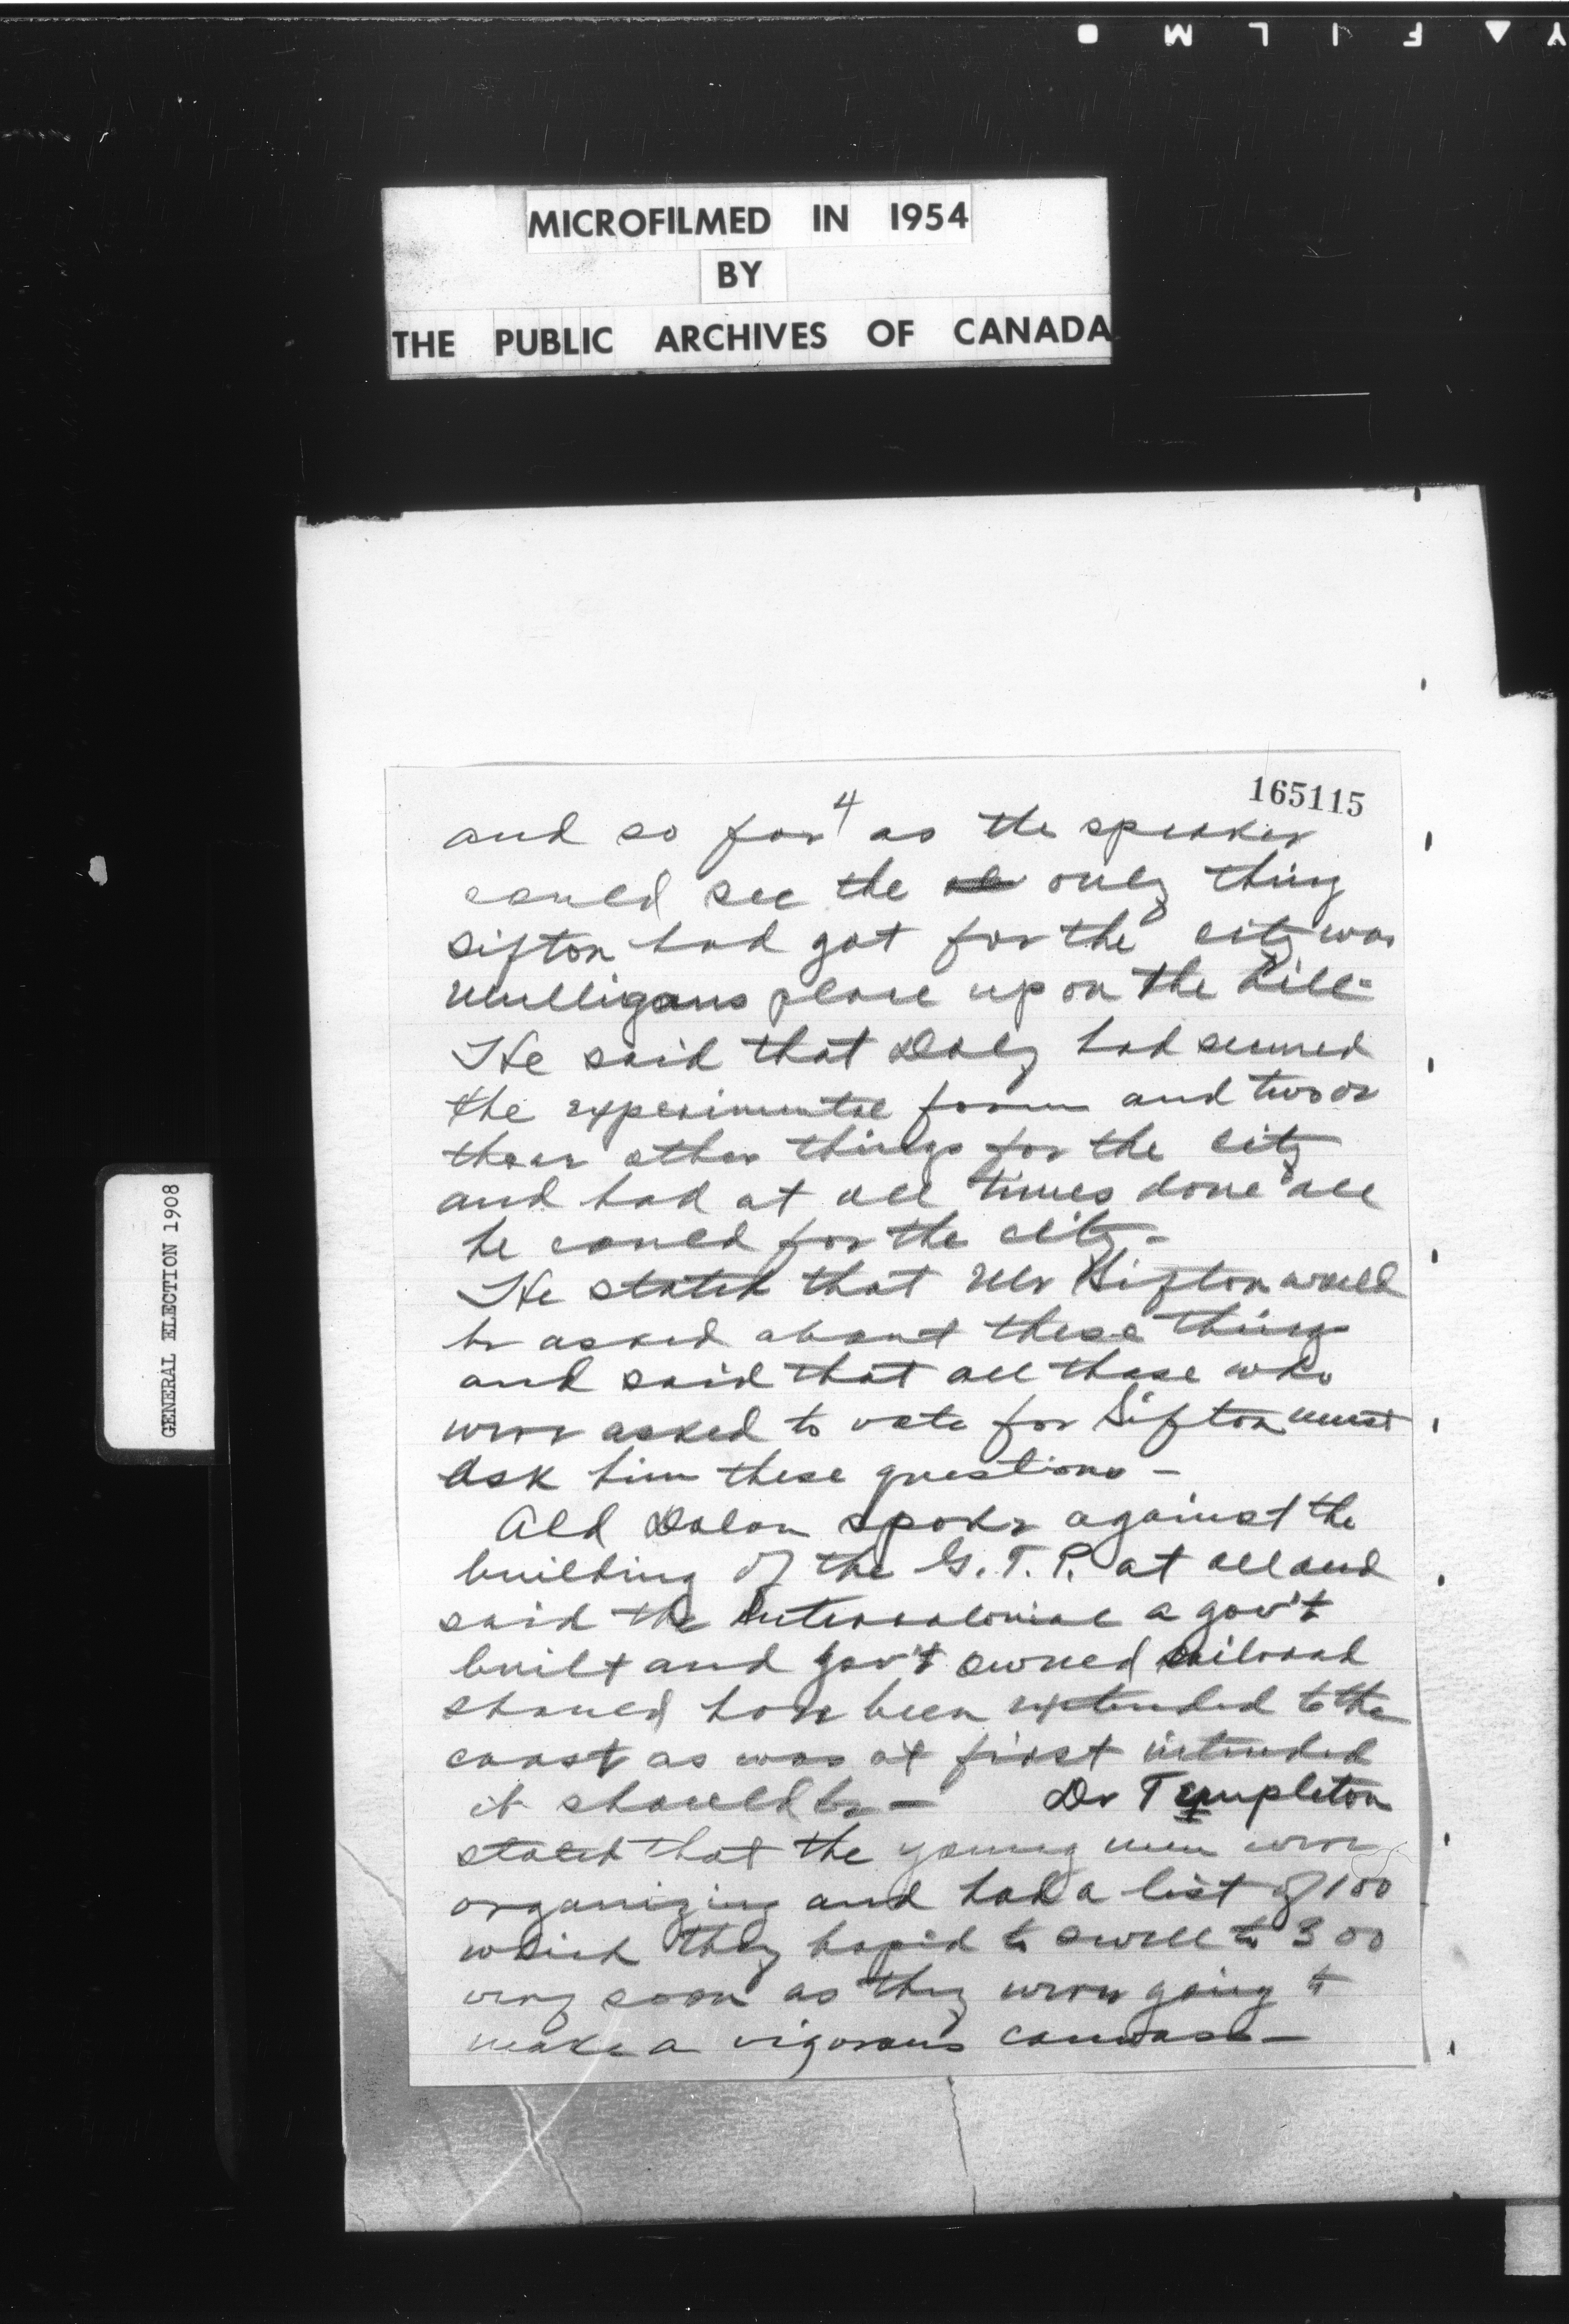 Y ▲ F I L M ●
MICROFILMED IN 1954
BY
THE PUBLIC ARCHIVES OF CANADA
GENERAL ELECTION 1908
165115
4
and so far as the speaker
could see the only thing
Sifton had got for the city was
Mulligans place up on the hill-
He said that Daly had secured
the experimental farm and two or
three other things for the city
and had at all times done all
he could for the city-
He stated that Mr Sifton would
be asked about these things
and said that all those who
were asked to vote for Sifton must
ask him these questions-
Ald Dolan spoke against the
building of the G.T.P. at all and
said the Intercolonial a gov't
built and gov't owned railroad
should have been extended to the
coast as was at first intended
it should be- Dr Templeton
stated that the young men were
organizing and had a list of 100
which they hoped to swell to 300
very soon as they were going to
make a vigorous canvass-